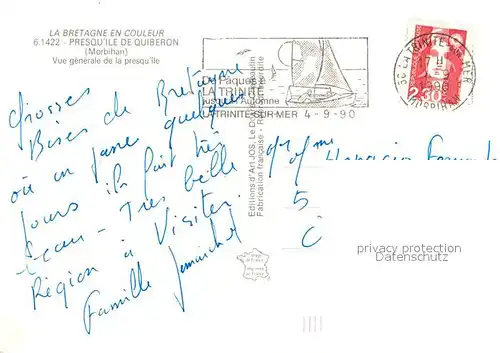 LA BRETAGNE EN COULEUR
6.1422 - PRESQU'ILE DE QUIBERON
(Morbihan)
Vue générale de la presqu'île
De Pâques à
LA TRINITÉ
jusqu'à l'Automne
LA TRINITE-SUR-MER 4-9-90
56 LA TRINITE SUR MER
MORBIHAN
2.30
Grosses
Bises de Bretagne
où on passe quelques
jours il fait très
beau - Très belle
Région à Visiter.
Famille
Editions d'Art JOS, Le Doaré
Fabrication française - Reproduction interdite
5
privacy protection
Datenschutz